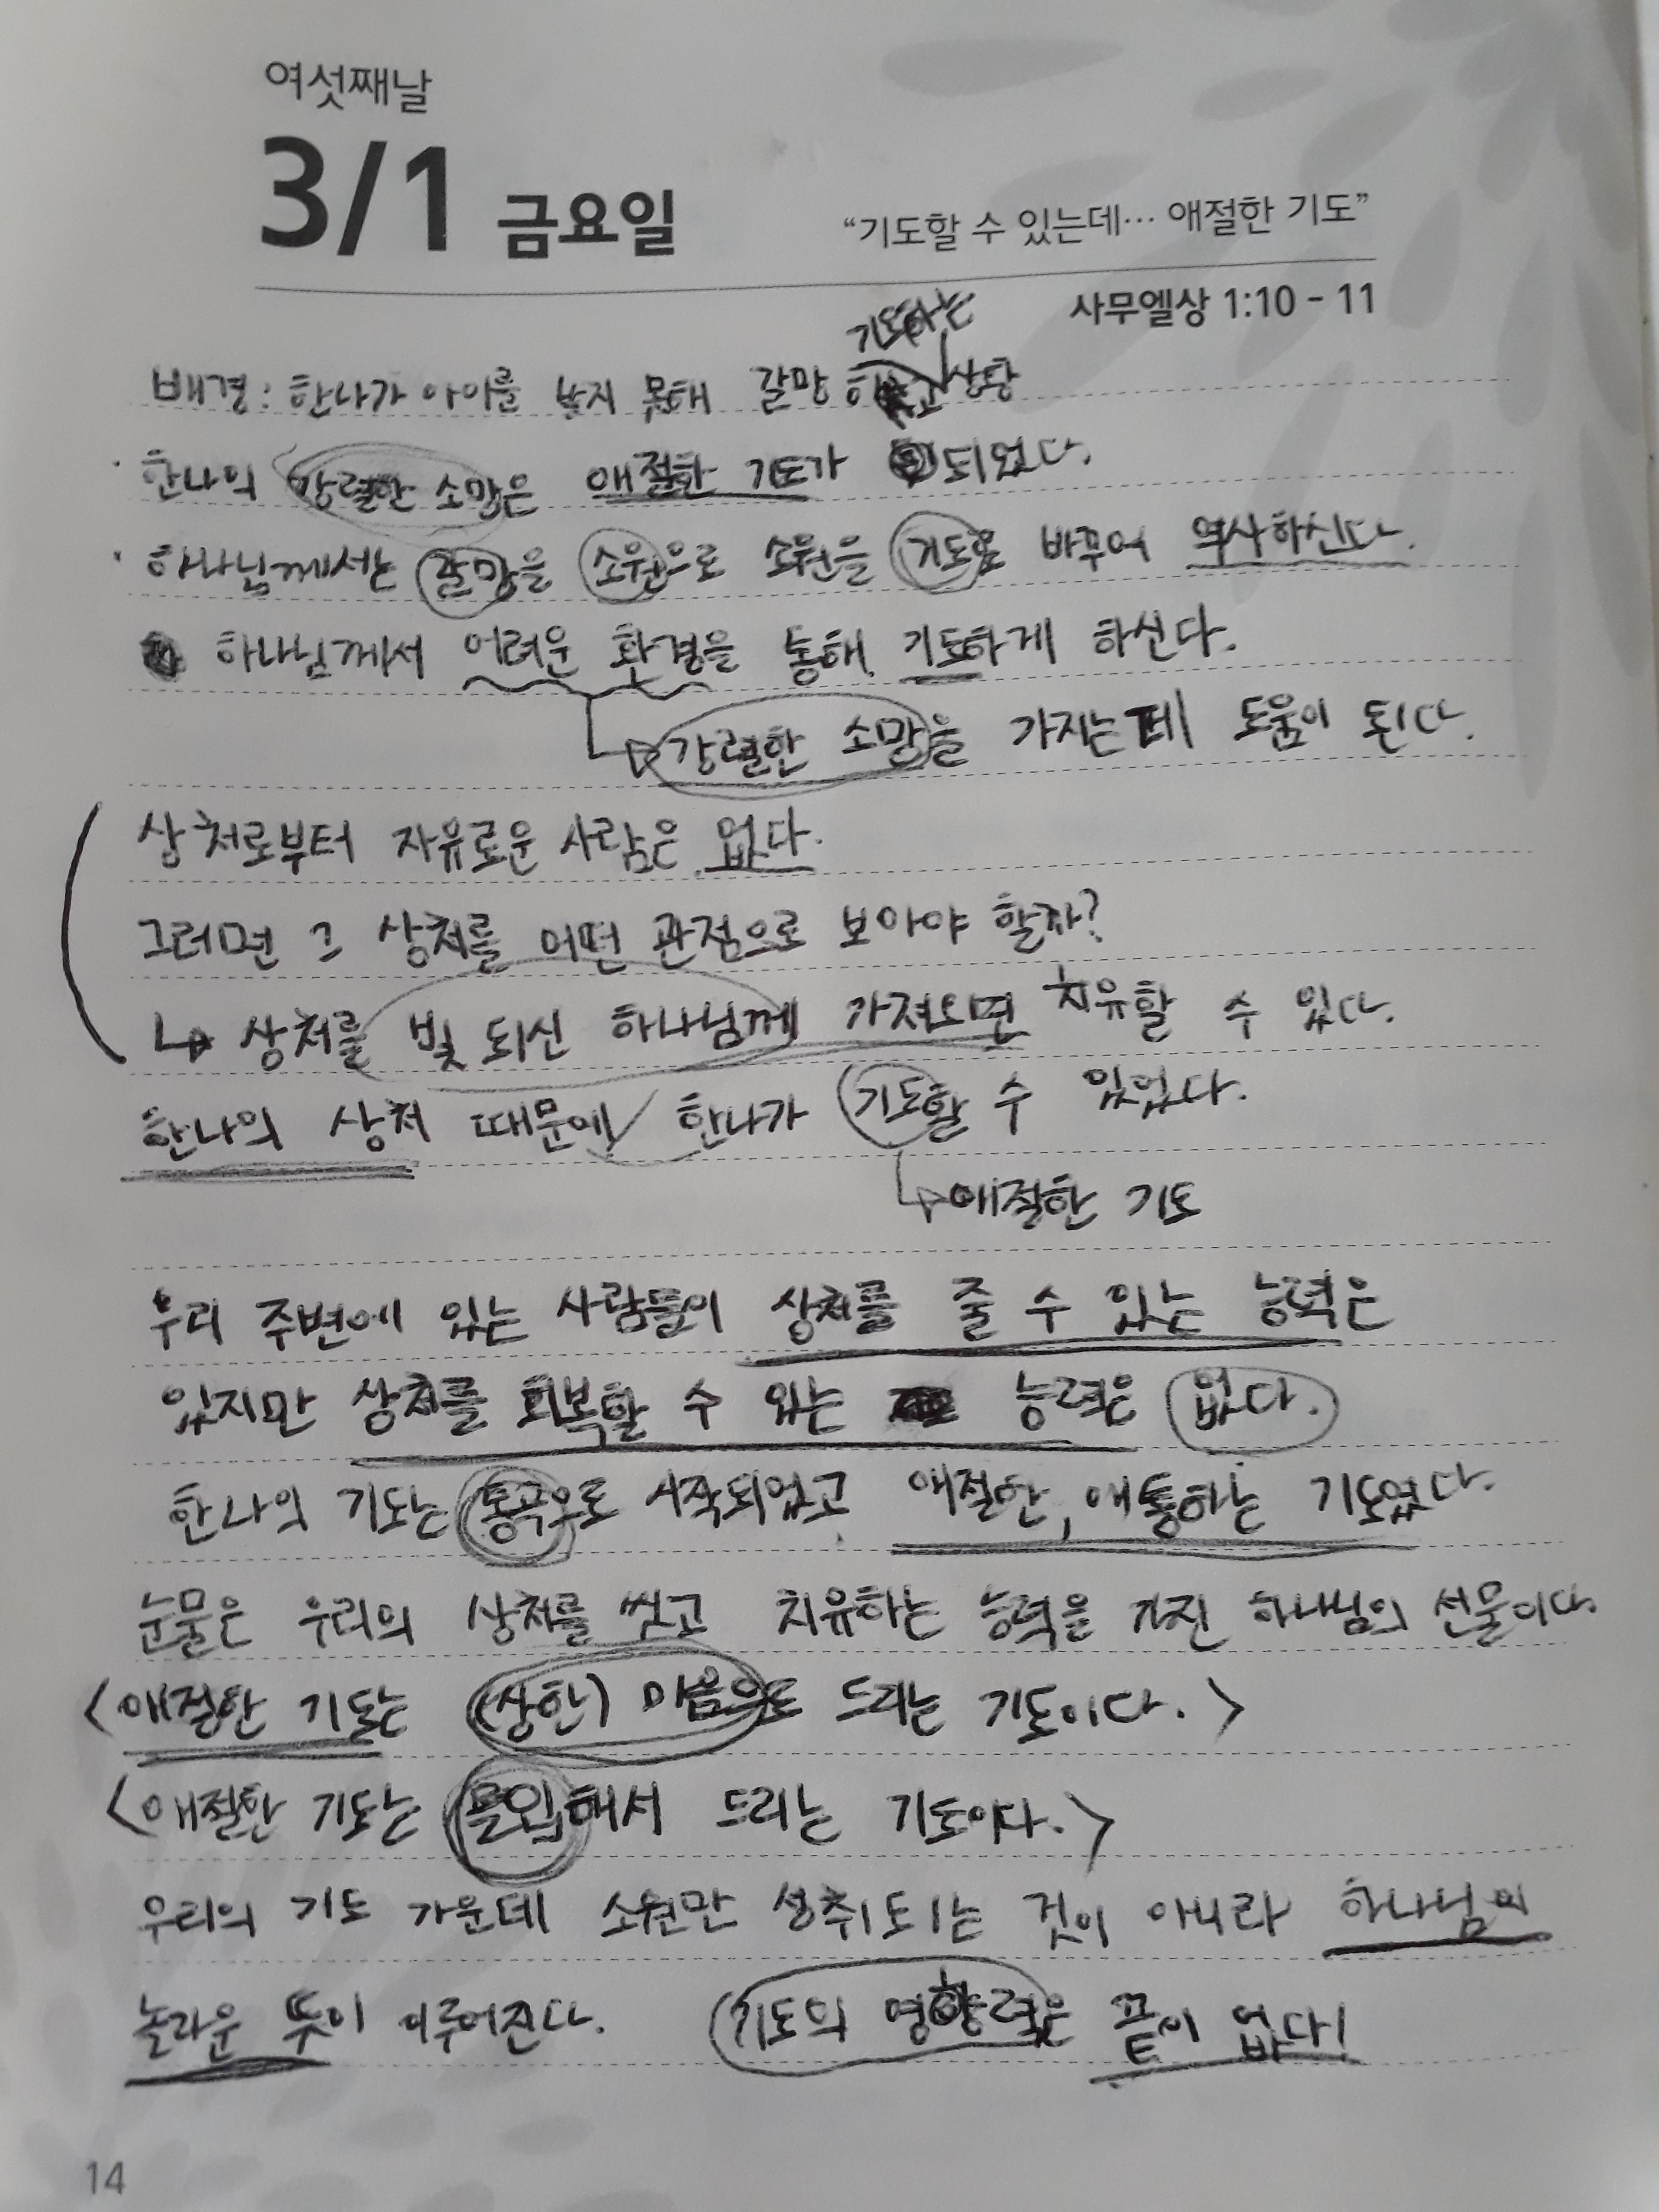 여섯째날
3/1 금요일
“기도할 수 있는데… 애절한 기도”
사무엘상 1:10 - 11
기도하는
배경: 한나가 아이를 낳지 못해 갈망 상황
· 한나의 강렬한 소망은 애절한 기도가 되었다.
· 하나님께서는 갈망을 소원으로 소원을 기도로 바꾸어 역사하신다.
하나님께서 어려운 환경을 통해 기도하게 하신다.
↳ 강렬한 소망을 가지는데 도움이 된다.
상처로부터 자유로운 사람은 없다.
그러면 그 상처를 어떤 관점으로 보아야 할까?
↳ 상처를 빛 되신 하나님께 가져오면 치유할 수 있다.
한나의 상처 때문에 한나가 기도할 수 있었다.
↳ 애절한 기도
우리 주변에 있는 사람들이 상처를 줄 수 있는 능력은
있지만 상처를 회복할 수 있는 능력은 없다.
한나의 기도는 통곡으로 시작되었고 애절한, 애통하는 기도였다.
눈물은 우리의 상처를 씻고 치유하는 능력을 가진 하나님의 선물이다.
<애절한 기도는 (상한) 마음으로 드리는 기도이다.>
<애절한 기도는 몰입해서 드리는 기도이다.>
우리의 기도 가운데 소원만 성취되는 것이 아니라 하나님의
놀라운 뜻이 이루어진다. 기도의 영향력은 끝이 없다!
14